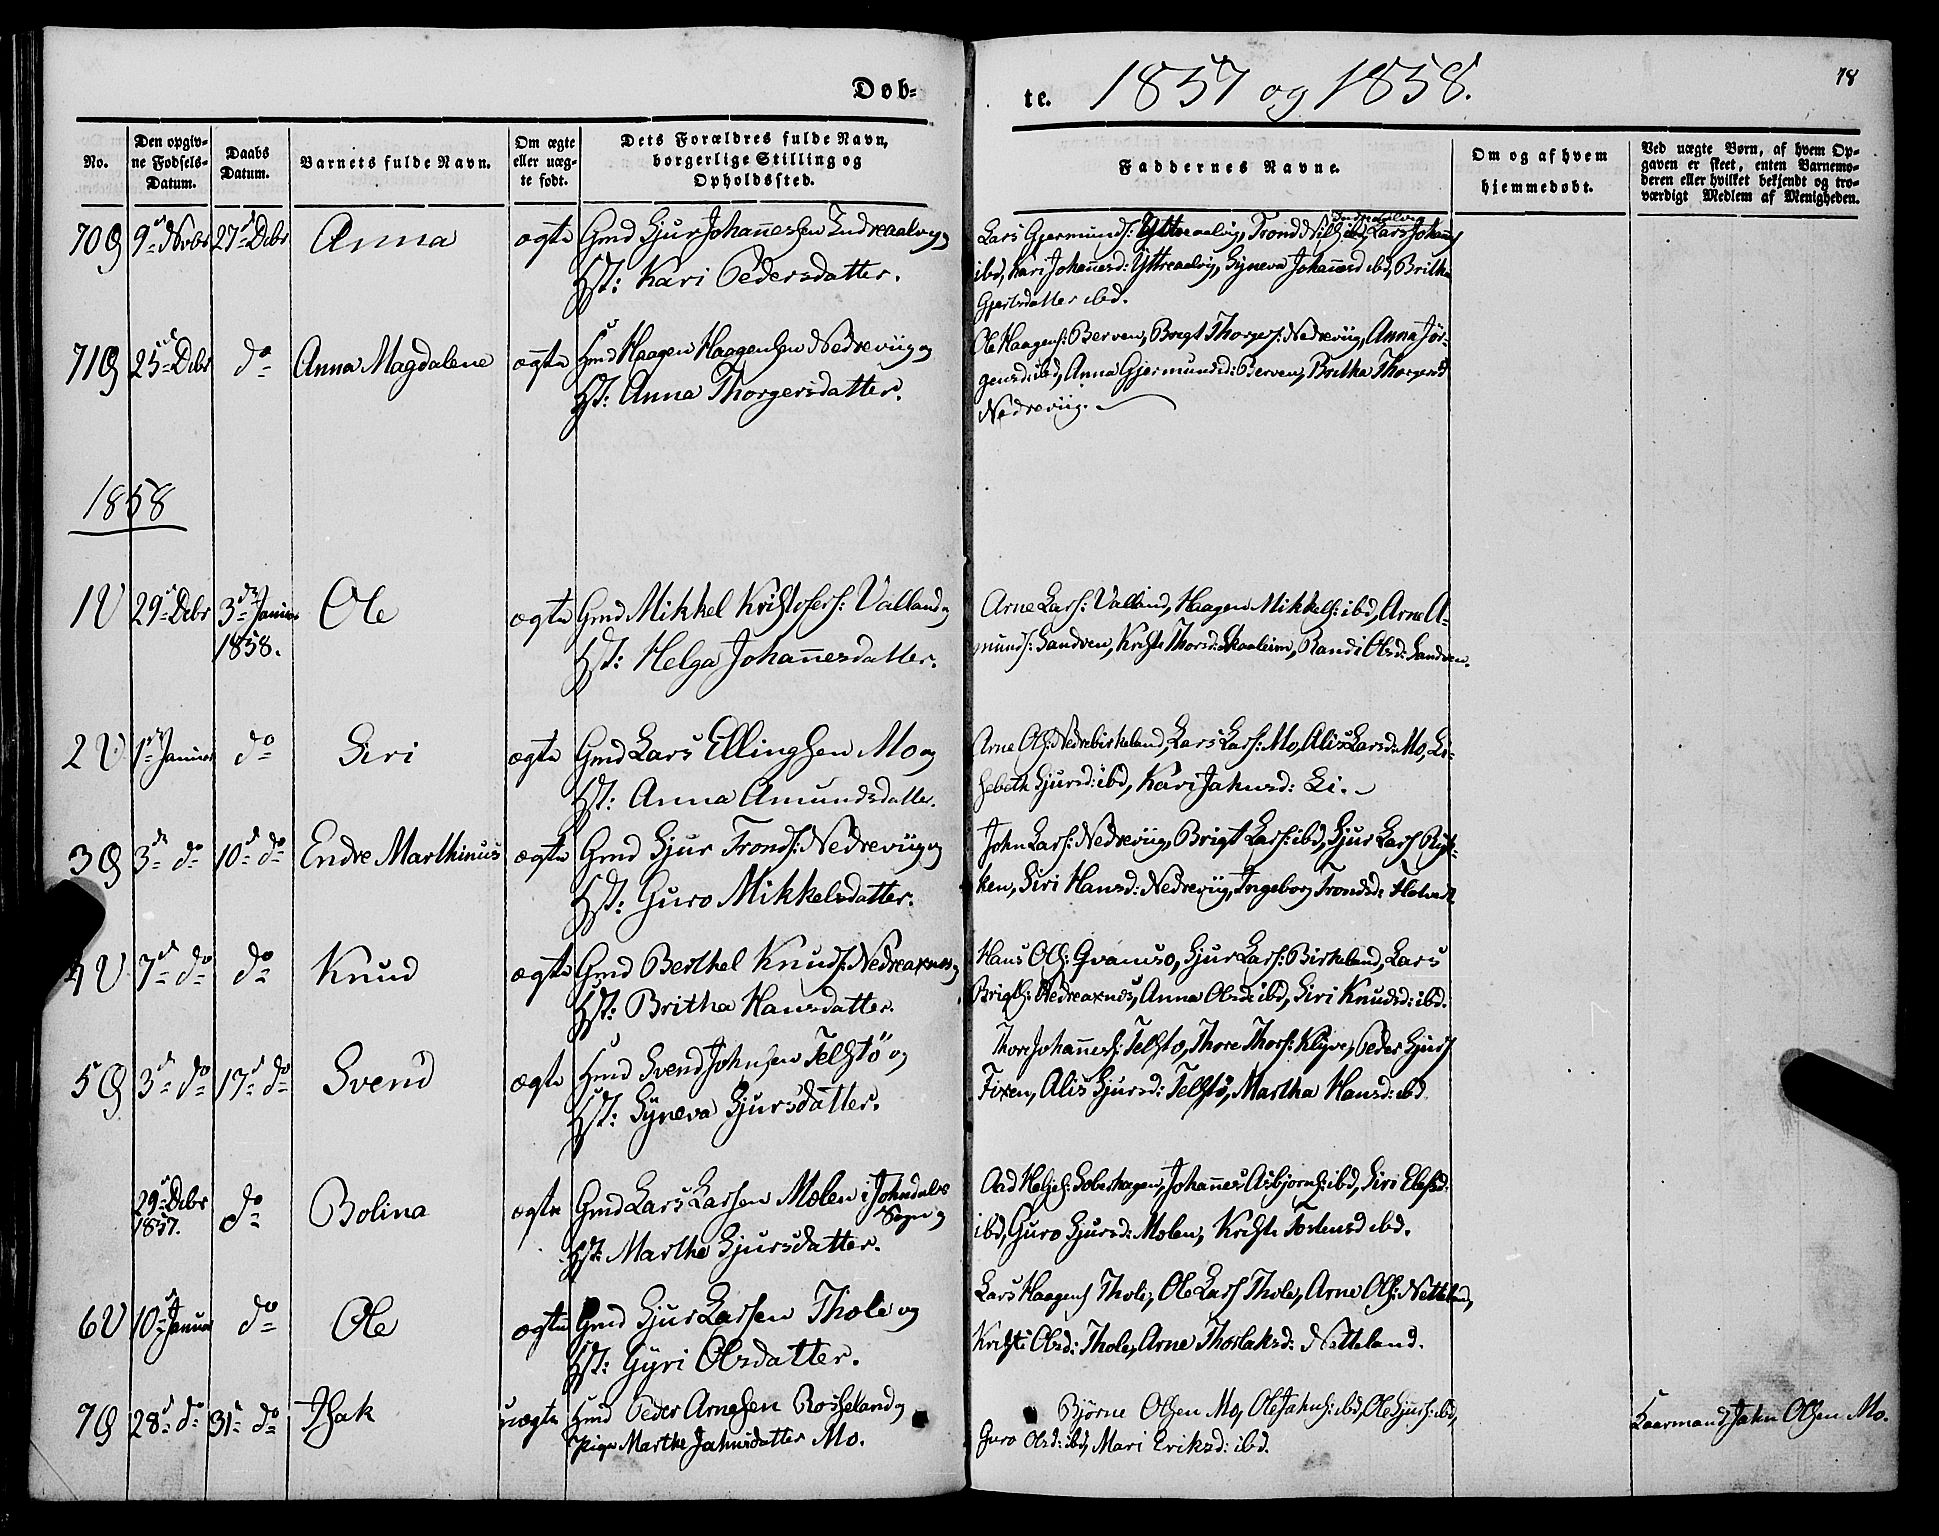 Døb-
te.
1857 og 1858.
78
No.
Den opgiv-
ne Fødsels-
Datum.
Daabs
Datum.
Barnets fulde Navn.
Om ægte
eller uæg-
te født.
Dets Forældres fulde Navn,
borgerlige Stilling og
Opholdssted.
Faddernes Navne.
Om og af hvem
hjemmedøbt.
Ved uægte Børn, af hvem Op-
gaven er skeet, enten Barnemo-
deren eller hvilket bekjendt og tro-
værdigt Medlem af Menigheden.
70 9de Novbr 27de Decbr Anna ægte Gmd Sjur Johannessen Indreaalvig
Hst: Kari Pedersdatter.
Lars Gjermunds: Ytreaalvig, Trond Nils: Lars Johanns
ibd, Kari Johannesd: Yttreaalvig, Syneva Johannesd ibd, Britha
Gjertsdatter ibd.
71 25de Debr do Anna Magdalene ægte Hmd Haagen Haagensen Nedreviig og
Hst: Anna Thorgersdatter.
Ole Haagens: Berven, Bregt Thorgers: Nedreviig, Anna Jør-
gensd: ibd, Anna Gjermundsd: Berven, Britha Thorgersd
Nedreviig.
1858
1 29de Debr 3die Januar
1858.
Ole ægte Gmd Mikkel Kristofers: Valland og
Hst: Helga Johannesdatter.
Arne Lars: Valland, Haagen Mikkels: ibd, Arne A-
munds: Sandven, Kriste Thorsd: Skaaleim, Randi Olsd: Sandven.
2 1ste Januar do Siri ægte Gmd Lars Ellingsen Mo og
Hst: Anna Amundsdatter.
Arne Ols: Nedrebirkeland, Lars Lars: Mo, Alis Larsd: Mo, Li-
sebeth Sjursd: ibd, Kari Jahnsd: Li.
3 3de do 10de do Endre Marthinus ægte Gmd Sjur Tronds: Nedreviig og
Hst: Guro Mikkelsdatter.
John Lars: Nedreviig, Brigt Lars: ibd, Sjur Lars Ryk-
ken, Siri Hansd: Nedreviig, Ingeborg Trondsd:
4 7de do do Knud ægte Gmd Berthel Knuds: Nedreaxnes og
Hst: Britha Hansdatter.
Hans Ols: Qvamsø, Sjur Lars: Birkeland, Lars
Brigths: Nedreaxnes, Anna Olsd: ibd, Siri Knudsd: ibd.
5 3de do 17de do Svend ægte Hmd Svend Johnsen Telstø og
Hst: Syneva Sjursdatter.
Thore Johannes: Telstø, Thore Thors: Klyve, Peder Sjurs
Fixen, Alis Sjursd: Telstø, Martha Hansd: ibd
29de Debr
1857.
do Bolina ægte Gmd Lars Larsen Molen i Johndals
Sogn og
Hst: Marthe Sjursdatter.
Aad Heljes: Soberhagen, Johannes Asbjørns: ibd, Siri Elefsd:
ibd, Guro Sjursd: Molen, Kriste Tostensd ibd.
6 10de Januar do Ole ægte Gmd Sjur Larsen Thole og
Hst: Gyri Olsdatter.
Lars Haagens Thole, Ole Lars Thole, Arne Ols: Netteland,
Kriste Olsd: Thole, Arne Thorlaksd: Netteland.
7 28de do 31te do Isak uægte Hmd Peder Arnesen Rosseland og
Pige Marthe Jahnsdatter Mo.
Bjørne Olsen Mo, Ole Jahns: ibd, Ole Sjurs: ibd,
Guro Olsd: ibd, Mari Eriksd: ibd.
Kaarmand Jahn Olsen Mo.